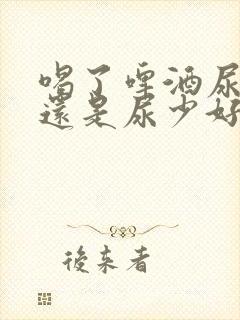 喝了啤酒尿
還是尿少好
後来者